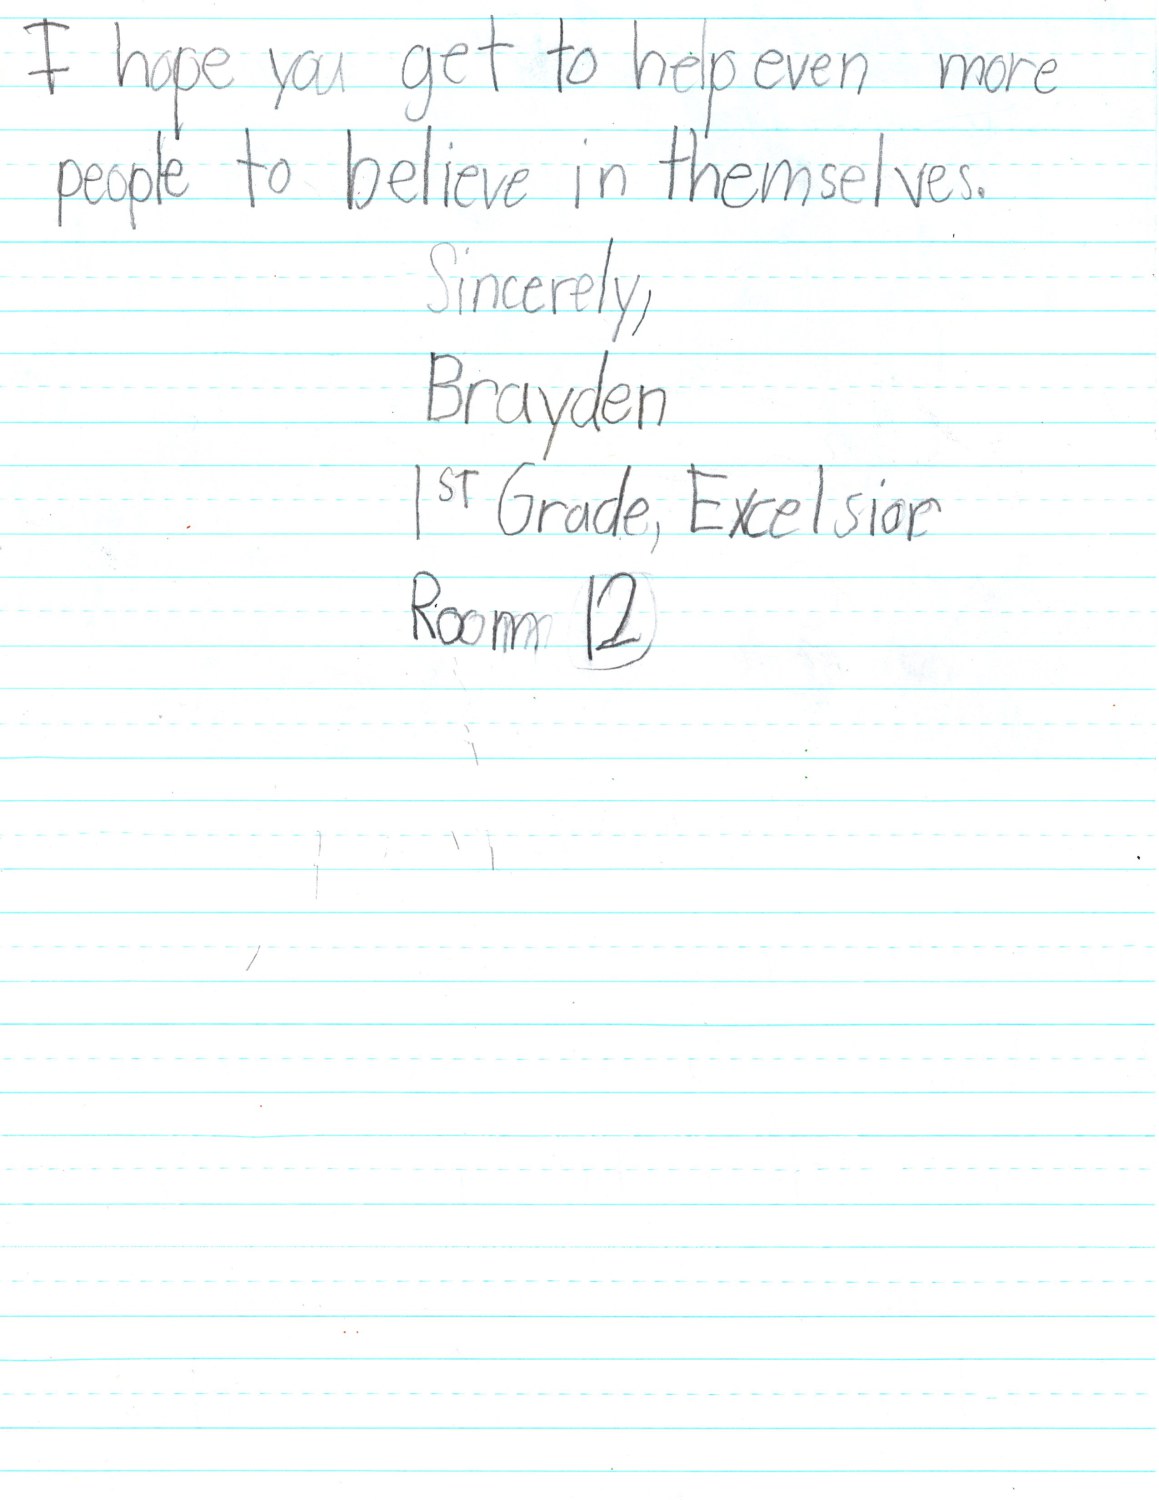 I hope you get to help even more
people to believe in themselves.
Sincerely,
Brayden
1ST Grade, Excelsior
Room 12